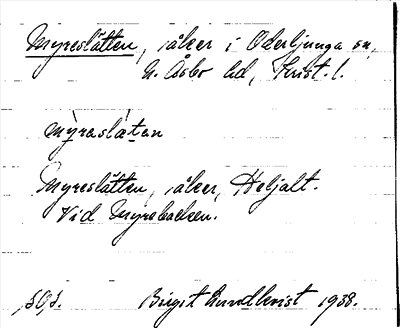 Myreslätten, åker i Oderljunga sn,
N. Åsbo hd, Krist. l.
mỳraslàtan
Myreslätten, åker, Heljalt.
Vid Myrabacken.
Birgit Lundkvist 1938.